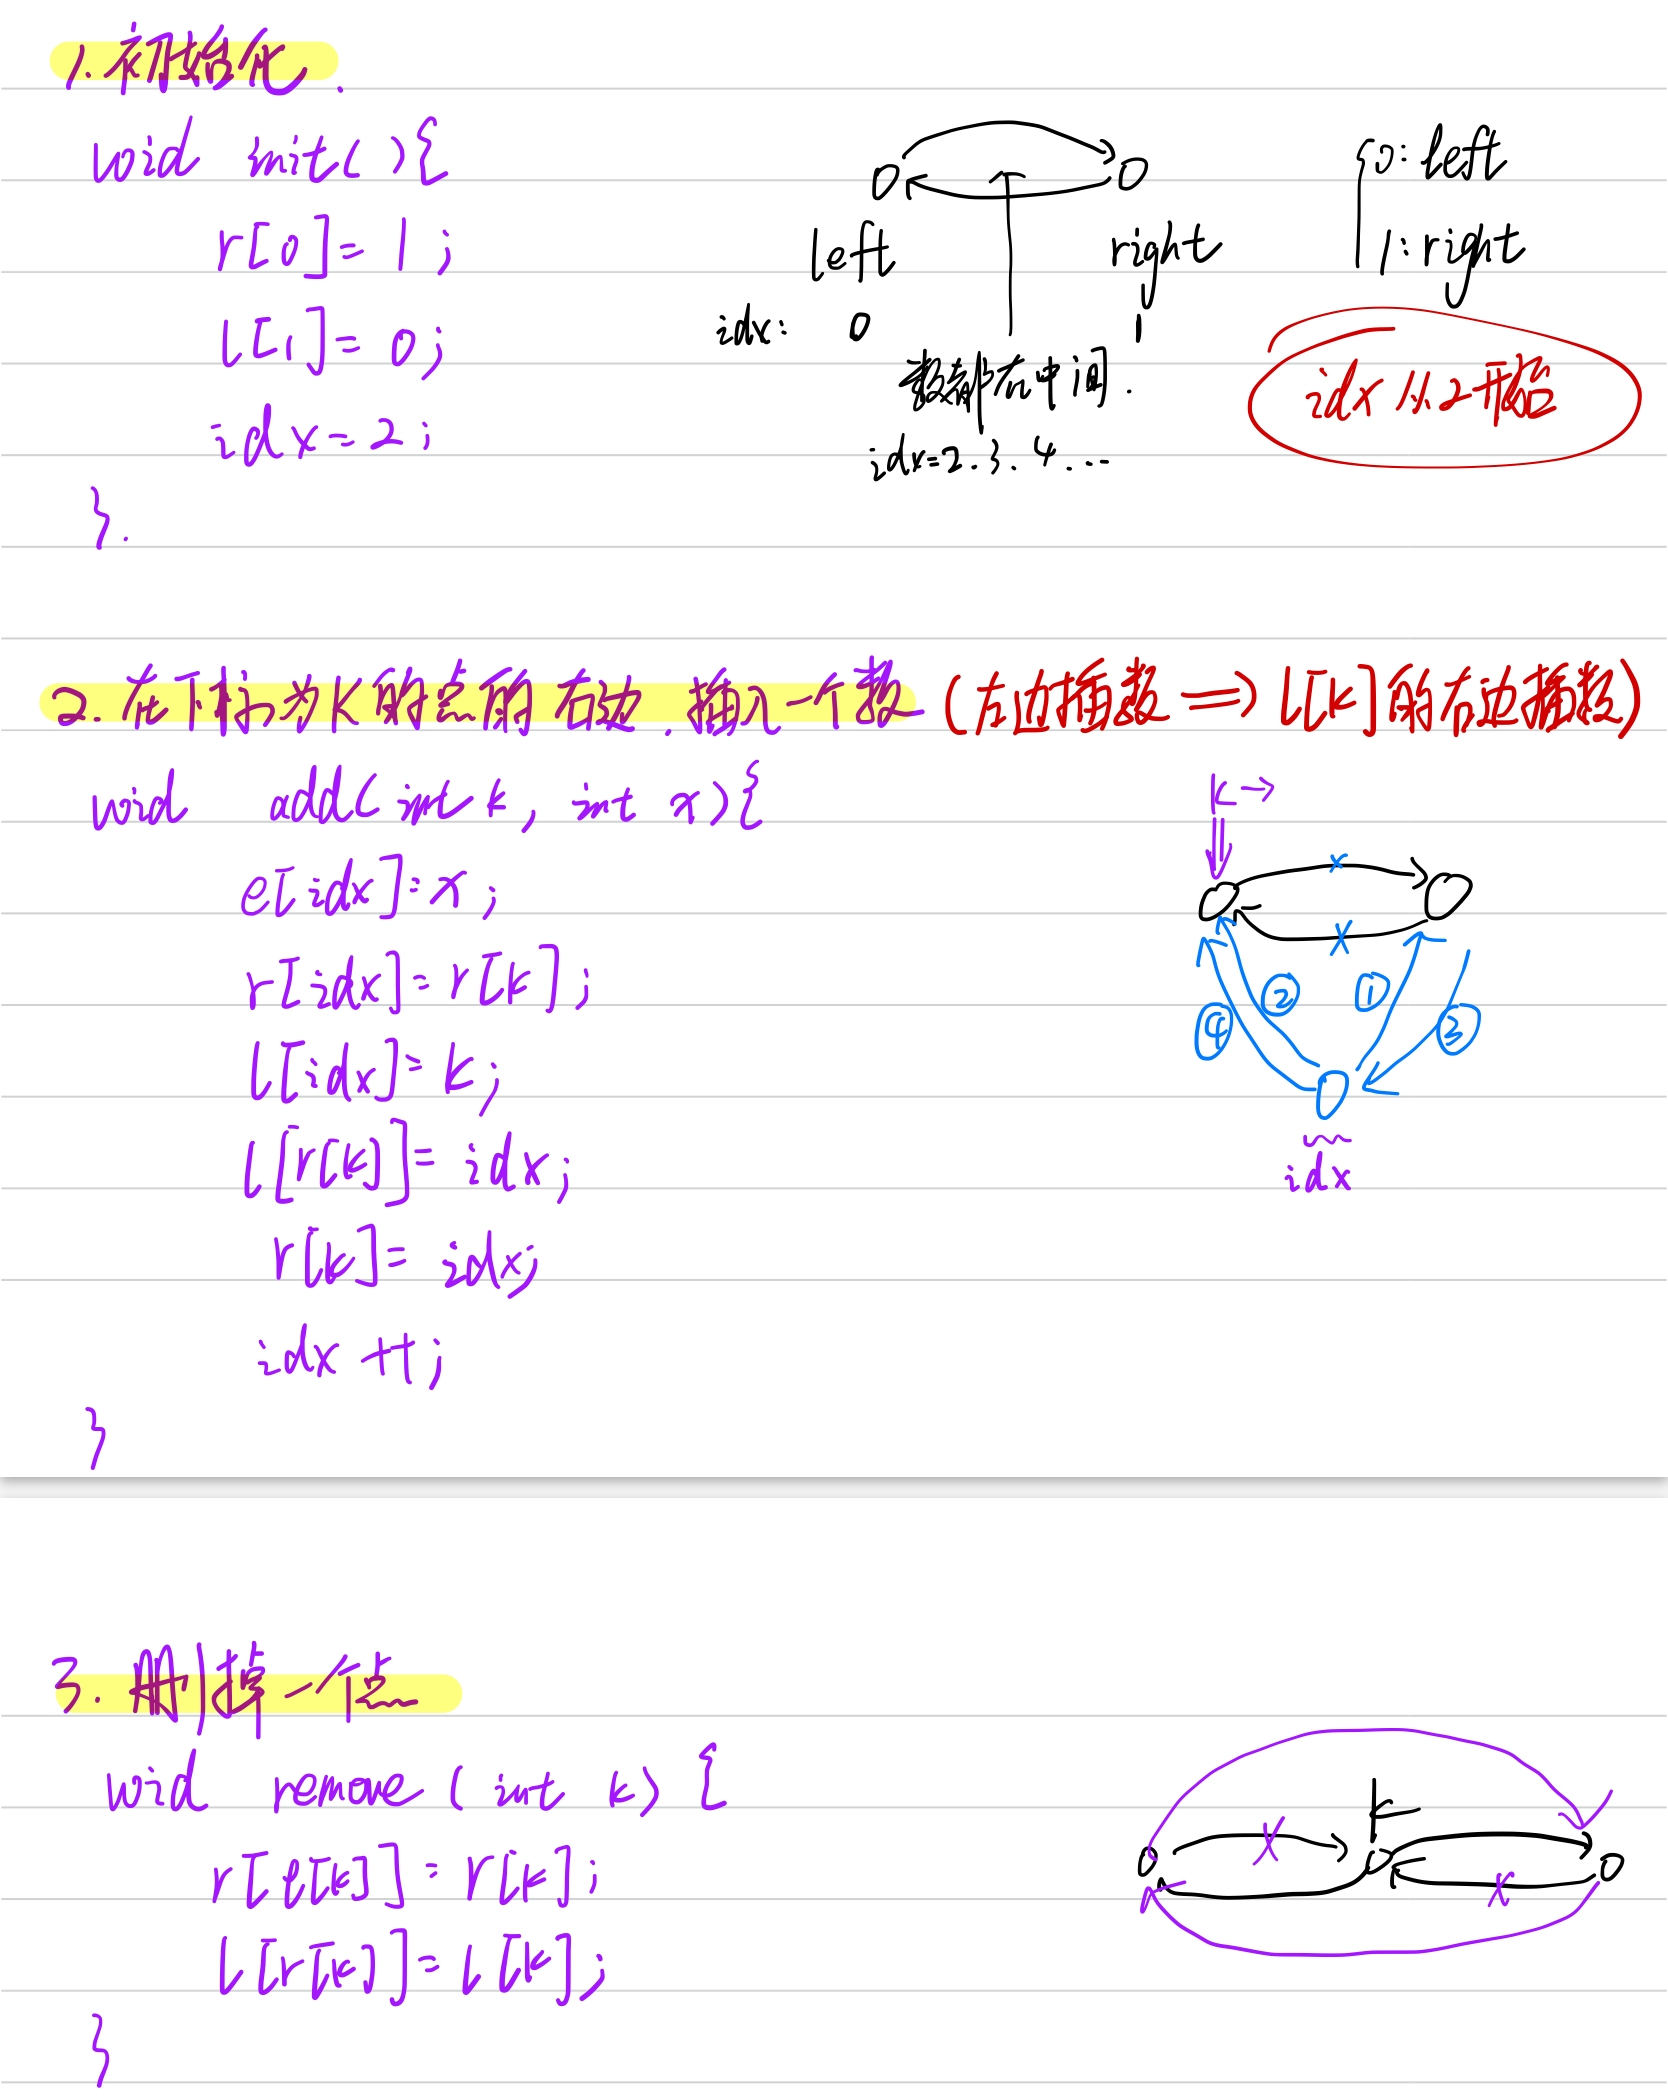 1. 初始化.
void init(){
r[0]=1;
l[1]=0;
idx=2;
}.
left right
idx: 0 1
数都在中间.
idx=2.3.4...
0: left
1: right
idx从2开始
2. 在下标为K的点的右边.插入一个数 (左边插数 => l[k]的右边插数)
void add(int k, int x){
e[idx]=x;
r[idx]=r[k];
l[idx]=k;
l[r[k]]=idx;
r[k]=idx;
idx++;
}
K→
x
x
④ ② ① ③
idx
3. 删掉一个点
void remove(int k){
r[l[k]]=r[k];
l[r[k]]=l[k];
}
K
x
x